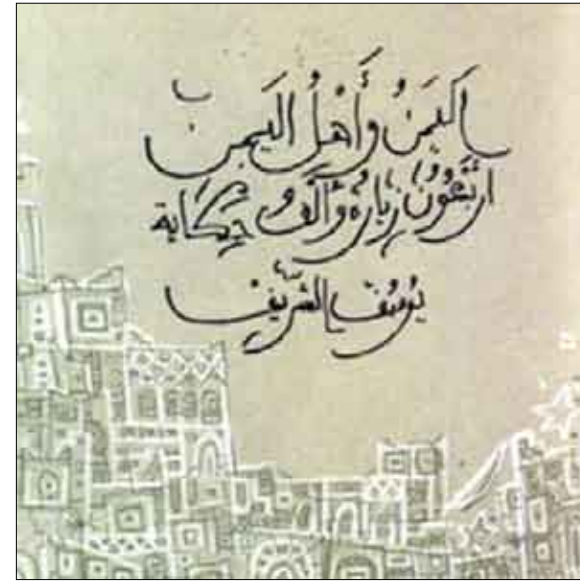 اليَمَنُ وَأَهْلُ اليَمَن
أَرْبَعُونَ زِيَارة وَأَلْفُ حِكَاية
يُوسُف الشَّرِيف